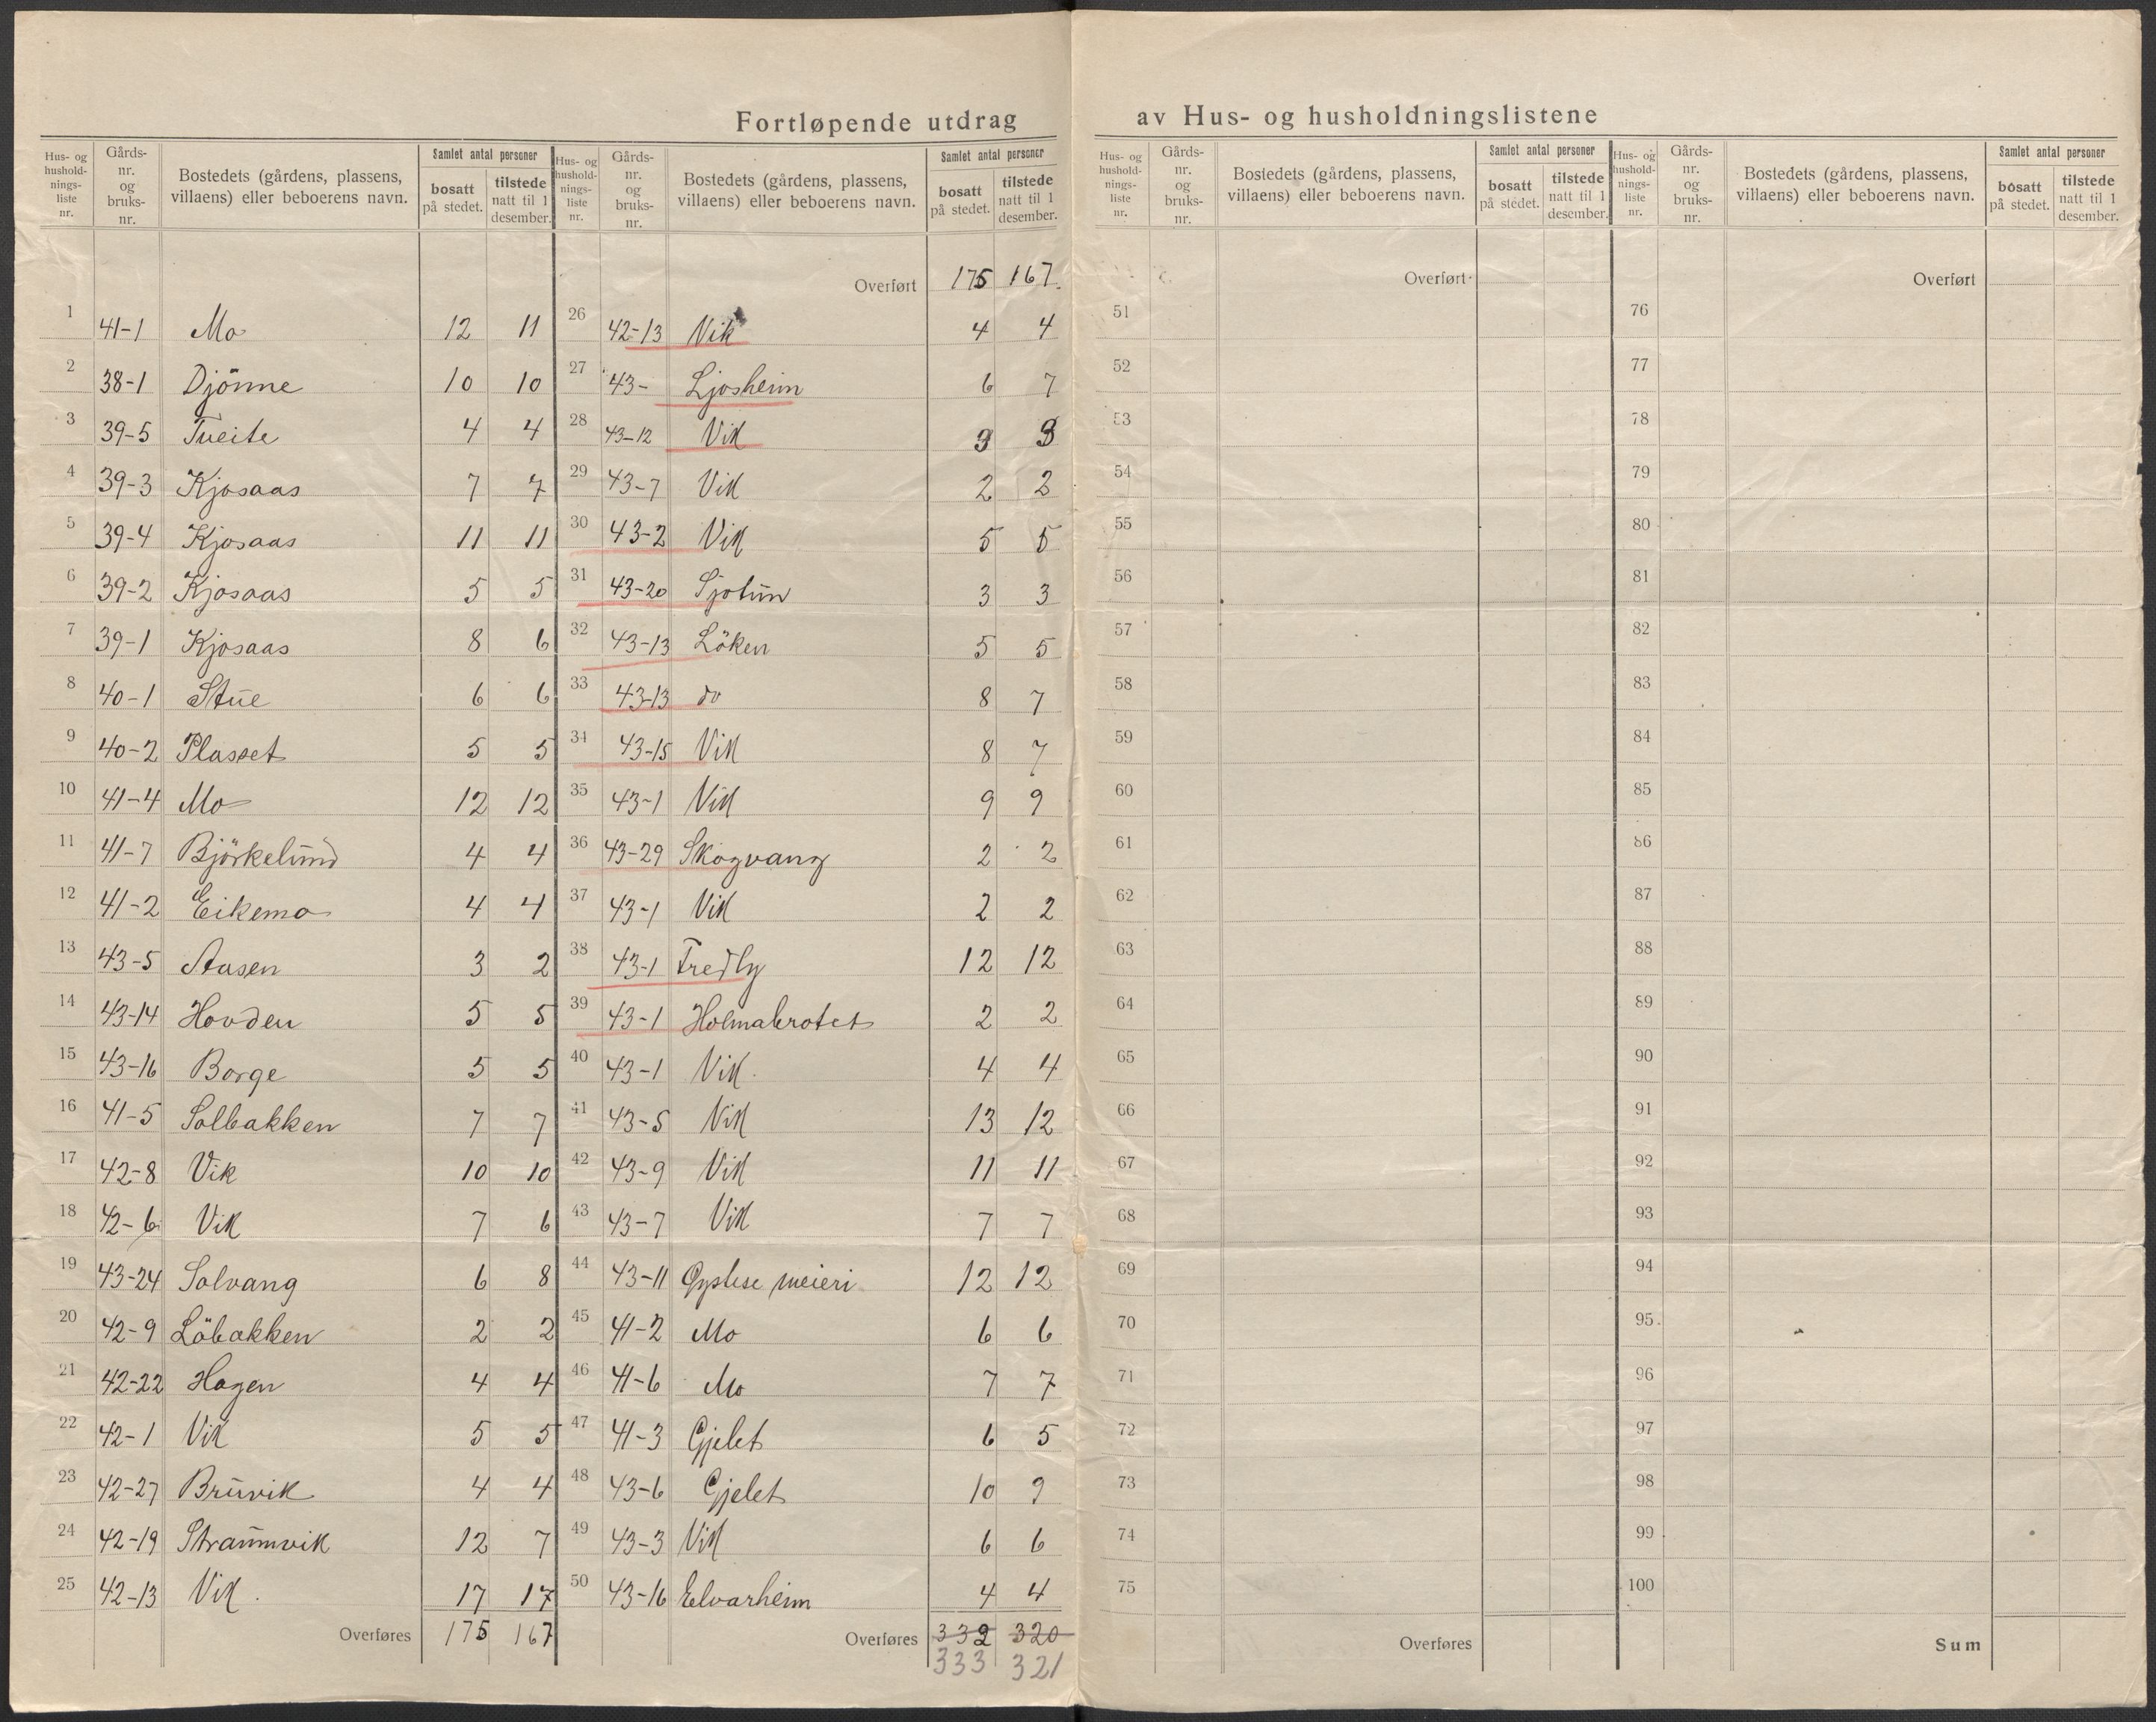 Fortløpende utdrag av Hus- og husholdningslistene
Hus- og hushold-nings-liste nr. | Gårds-nr. og bruks-nr. | Bostedets (gårdens, plassens, villaens) eller beboerens navn. | Samlet antal personer | bosatt på stedet. | tilstede natt til 1 desember.
1 41-1 Mo 12 11
2 38-1 Djönne 10 10
3 39-5 Tveite 4 4
4 39-3 Kjosaas 7 7
5 39-4 Kjosaas 11 11
6 39-2 Kjosaas 5 5
7 39-1 Kjosaas 8 6
8 40-1 Stue 6 6
9 40-2 Plasset 5 5
10 41-4 Mo 12 12
11 41-7 Björkelund 4 4
12 41-2 Eikemo 4 4
13 43-5 Aasen 3 2
14 43-14 Hovden 5 5
15 43-16 Borge 5 5
16 41-5 Solbakken 7 7
17 42-8 Vik 10 10
18 42-6 Vik 7 6
19 43-24 Solvang 6 8
20 42-9 Löbakken 2 2
21 42-22 Hagen 4 4
22 42-1 Vik 5 5
23 42-27 Bruvik 4 4
24 42-19 Straumvik 12 7
25 42-13 Vik. 17 17
Overføres 175 167
Hus- og hushold-nings-liste nr. | Gårds-nr. og bruks-nr. | Bostedets (gårdens, plassens, villaens) eller beboerens navn. | Samlet antal personer | bosatt på stedet. | tilstede natt til 1 desember.
Overført 175 167.
26 42-13 Vik 4 4
27 43- Ljosheim 6 7
28 43-12 Vik
29 43-7 Vik 2 2
30 43-2 Vik 5 5
31 43-20 Sjotun 3 3
32 43-13 Löken 5 5
33 43-13 do 8 7
34 43-15 Vik 8 7
35 43-1 Vik 9 9
36 43-29 Skogvang 2 2
37 43-1 Vik 2 2
38 43-1 Fredly 12 12
39 43-1 Holmabrotet 2 2
40 43-1 Vik. 4 4
41 43-5 Vik 13 12
42 43-9 Vik 11 11
43 43-7 Vik 7 7
44 43-11 Øystese meieri 12 12
45 41-2 Mo 6 6
46 41-6 Mo 7 7
47 41-3 Gjelet 6 5
48 43-6 Gjelet 10 9
49 43-3 Vik 6 6
50 43-16 Elvarheim 4 4
Overføres 332 320
333 321
Hus- og hushold-nings-liste nr. | Gårds-nr. og bruks-nr. | Bostedets (gårdens, plassens, villaens) eller beboerens navn. | Samlet antal personer | bosatt på stedet. | tilstede natt til 1 desember.
Overført
51
52
53
54
55
56
57
58
59
60
61
62
63
64
65
66
67
68
69
70
71
72
73
74
75
Overføres
Hus- og hushold-nings-liste nr. | Gårds-nr. og bruks-nr. | Bostedets (gårdens, plassens, villaens) eller beboerens navn. | Samlet antal personer | bosatt på stedet. | tilstede natt til 1 desember.
Overført
76
77
78
79
80
81
82
83
84
85
86
87
88
89
90
91
92
93
94
95
96
97
98
99
100
Sum